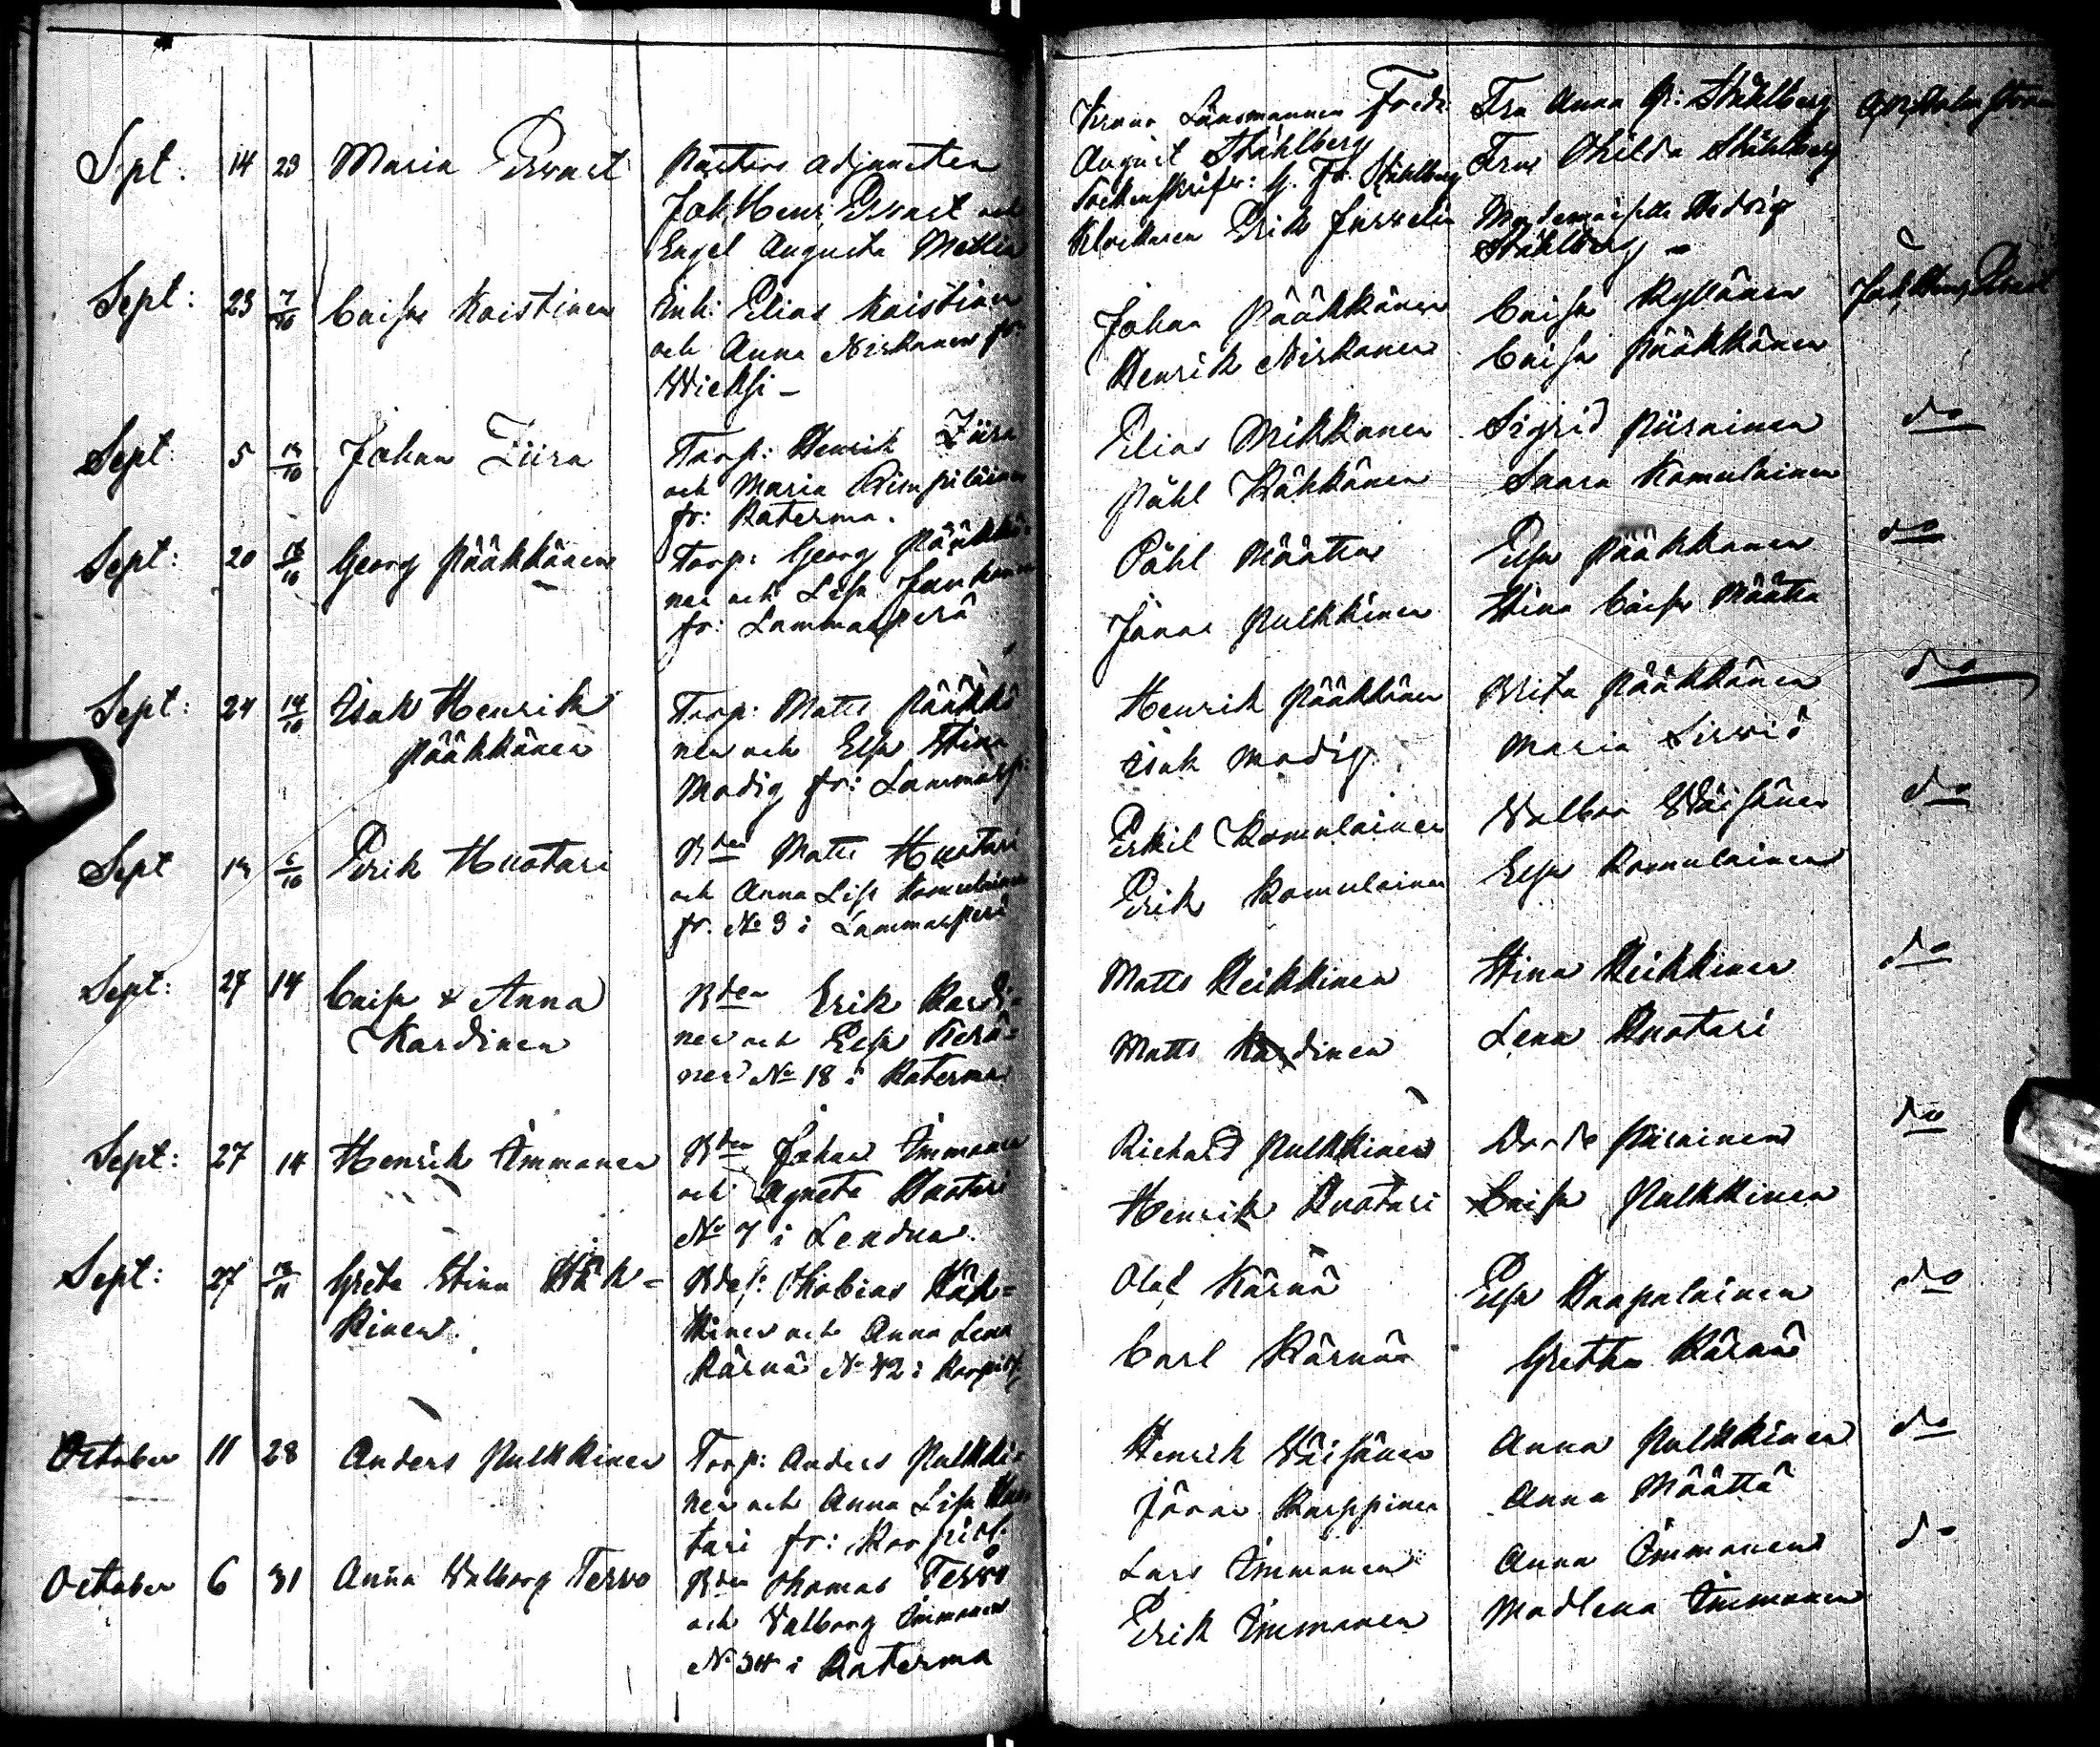 Sept. 14 23 Maria Ervast
Pastors Adjuncten
Joh. Henr. Ervast och
Engel Augusta
Krono Länsmannen Fredr.
August Ståhlberg
Klockaren Erik
Fru Anna Ståhlberg
Ståhlberg
Mademoiselle Hedvig
Ståhlberg
Sept: 23 7/10 Caisa Kaistinen
Inh: Elias Kaistinen
och Anna Niskanen fr:
Wieksi
Johan Pääkkönen
Henrik Niskanen
Caisa Kyllönen
Caisa Pääkkönen
Joh. Henr. Ervast
Sept: 5 Johan Ziira
Torp: Henrik Ziira
och Maria
fr: Katerma.
Elias Mikkonen
Påhl Kähkönen
Sigrid Piirainen
Saara Komulainen
do
Sept: 20 Georg Pääkkönen
Torp: Georg Pääkkö-
nen och Lisa
fr: Lammasperä
Påhl Määttä
Jöran Pulkkinen
Elsa Pääkkönen
Stina Caisa Määttä
do
Sept: 24 14/10 Isak Henrik
Pääkkönen
Torp: Matts Pääkkö
nen och Elsa Stina
Madig fr: Lammasp:
Henrik Pääkkönen
Isak Madig
Brita Pääkkönen
Maria Sirviö
do
Sept 6/10 Erik Huotari
Bden Matts Huotari
och Anna Lisa Komulainen
fr. No 3 i Lammasperä
Eskil Komulainen
Erik Komulainen
Valbor Väisänen
Elsa Komulainen
do
Sept: 27 14 Caisa & Anna
Kardinen
Bden Erik Kardi-
nen och Elsa Kerä-
nen No 18 i Katerma
Matts Heikkinen
Matts Kardinen
Stina Heikkinen
Lena Huotari
do
Sept: 27 14 Henrik Immonen
Bden Johan Immonen
och Agneta Huotari
No 7 i Lendua.
Richard Pulkkinen
Henrik Huotari
Piirainen
Caisa Pulkkinen
do
Sept: 27 Greta Stina
kinen.
Thobias
kinen och Anna Lena
Kärnä No 42 i
Olof Kärnä
Carl Kärnä
Elsa Haapalainen
Gretha Kärnä
do
October 11 28 Anders Pulkkinen
Torp: Anders Pulkki-
nen och Anna Lisa Huo
tari fr:
Henrik Väisänen
Jöran Karppinen
Anna Pulkkinen
Anna Määttä
do
October 6 31 Anna Valborg Tervo
Bden Thomas Tervo
och Valborg Immonen
No 34 i Katerma
Lars Immonen
Erik Immonen
Anna Immonen
Madlena Immonen
do